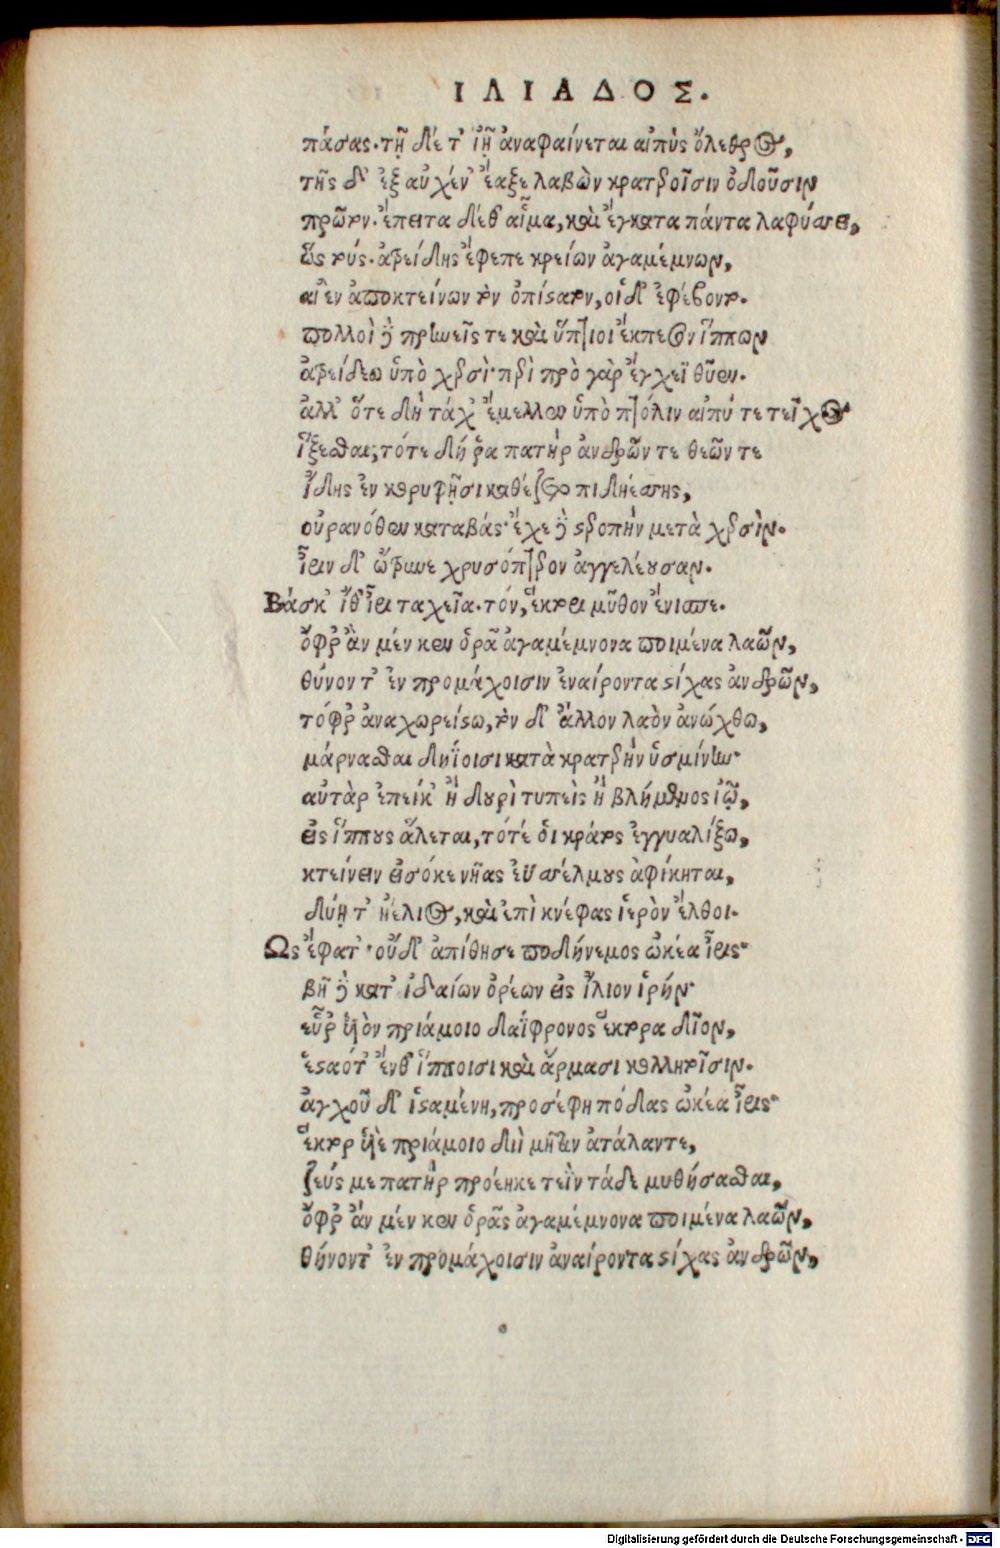 ΙΛΙΑΔΟΣ.
πάσας· τῇ δέ τ' ἰῇ ἀναφαίνεται αἰπὺς ὄλεθρος,
τῆς δ' ἐξ αὐχέν' ἔαξε λαβὼν κρατεροῖσιν ὀδοῦσιν
πρῶτον· ἔπειτα δέθ' αἷμα, καὶ ἔγκατα πάντα λαφύσσει,
ὣς τούς· ἀτρείδης ἔφεπε κρείων ἀγαμέμνων,
αἰὲν ἀποκτείνων τὸν ὀπίστατον, οἱ δ' ἐφέβοντο.
πολλοὶ δὲ πρηνεῖς τε καὶ ὕπτιοι ἔκπεσον ἵππων
ἀτρείδεω ὑπὸ χερσί· περὶ πρὸ γὰρ ἔγχεϊ θῦεν.
ἀλλ' ὅτε δὴ τάχ' ἔμελλεν ὑπὸ πτόλιν αἰπύ τε τεῖχος
ἵξεσθαι, τότε δή ῥα πατὴρ ἀνδρῶν τε θεῶν τε
ἴδης ἐν κορυφῇσι καθέζετο πιδηέσσης,
οὐρανόθεν καταβάς· ἔχε δὲ στεροπὴν μετὰ χερσὶν.
ἶριν δ' ὤτρυνε χρυσόπτερον ἀγγελέουσαν.
Βάσκ' ἴθ' ἶρι ταχεῖα· τόν, ἕκτορι μῦθον ἔνισπε.
ὄφρ' ἂν μέν κεν ὁρᾷ ἀγαμέμνονα ποιμένα λαῶν,
θύνοντ' ἐν προμάχοισιν ἐναίροντα στίχας ἀνδρῶν,
τόφρ' ἀναχωρείτω, τὸν δ' ἄλλον λαὸν ἀνώχθω,
μάρνασθαι δηΐοισι κατὰ κρατερὴν ὑσμίνην·
αὐτὰρ ἐπείκ' ἢ δουρὶ τυπεὶς ἢ βλήμενος ἰῷ,
εἰς ἵππους ἅλεται, τότέ οἱ κράτος ἐγγυαλίξω,
κτείνειν εἰσόκε νῆας ἐϋσσέλμους ἀφίκηται,
δύῃ τ' ἠέλιος, καὶ ἐπὶ κνέφας ἱερὸν ἔλθοι.
Ὣς ἔφατ'· οὐδ' ἀπίθησε ποδήνεμος ὠκέα ἶρις·
βῆ δὲ κατ' ἰδαίων ὀρέων εἰς ἴλιον ἱρήν·
εὗρ' υἱὸν πριάμοιο δαΐφρονος ἕκτορα δῖον,
ἑσταότ' ἔνθ' ἵπποισι καὶ ἅρμασι κολλητοῖσιν.
ἀγχοῦ δ' ἱσταμένη, προσέφη πόδας ὠκέα ἶρις·
ἕκτορ υἱὲ πριάμοιο διῒ μῆτιν ἀτάλαντε,
ζεύς με πατὴρ προέηκε τεῒν τάδε μυθήσασθαι,
ὄφρ' ἂν μέν κεν ὁρᾷς ἀγαμέμνονα ποιμένα λαῶν,
θήνοντ' ἐν προμάχοισιν ἀναίροντα στίχας ἀνδρῶν,
Digitalisierung gefördert durch die Deutsche Forschungsgemeinschaft - DFG